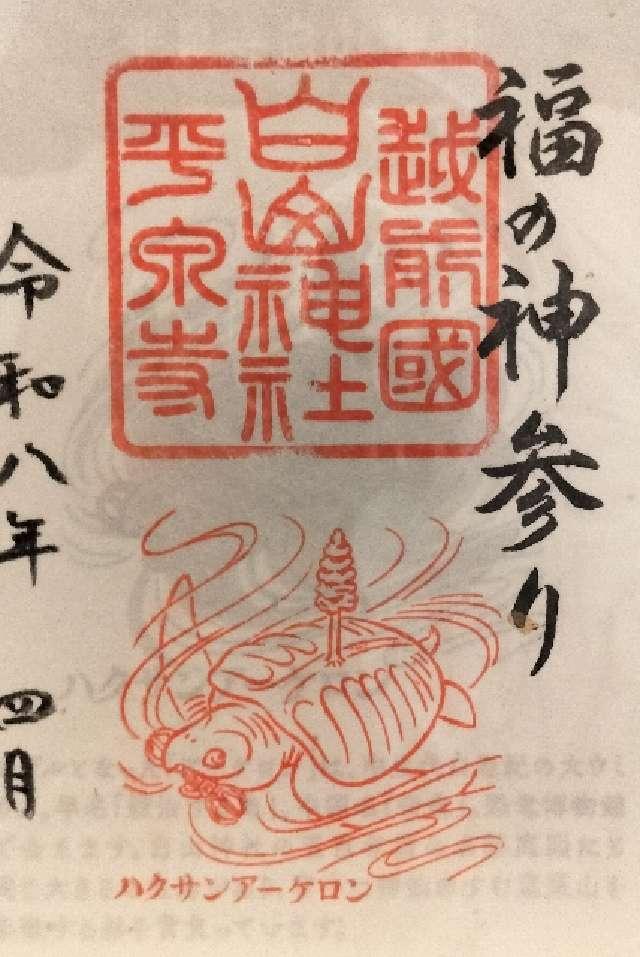 福の神参り
越前國
白山神社
平泉寺
令和八年 四月
ハクサンアーケロン